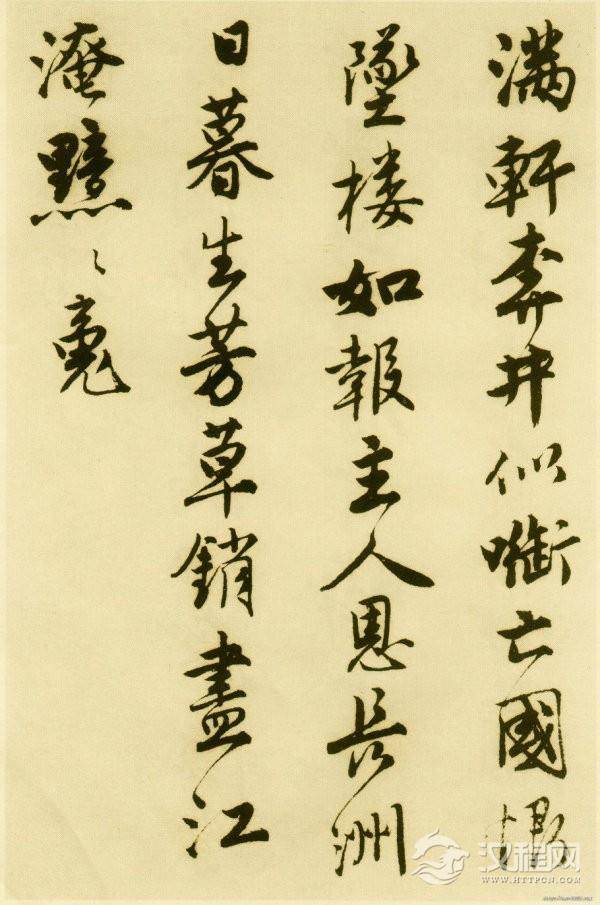 滿軒奔井似啣亡國恨
墜楼如報主人恩長洲
日暮生芳草銷盡江
淹黯々魂
汉程网
WWW.HTTPCN.COM